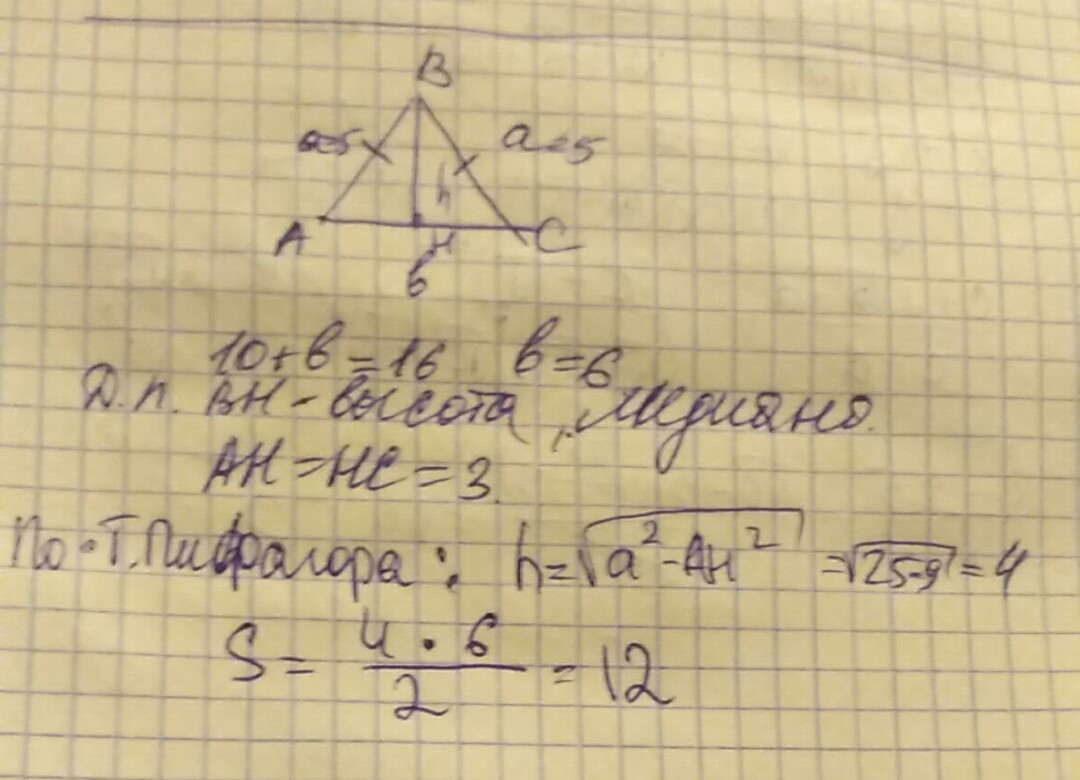 B
a=5 a=5
h
A H C
b
10+b=16 b=6
Д.п. BH - высота, медиана.
AH=HC=3.
По Т.Пифагора: h=√a²-AH² =√25-9=4
S= 4·6/2 =12